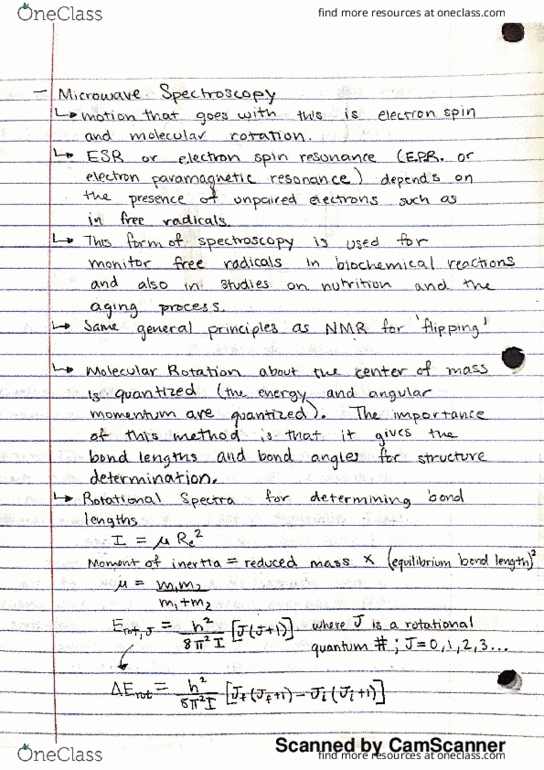 OneClass
find more resources at oneclass.com
– Microwave Spectroscopy
↳ motion that goes with this is electron spin
and molecular rotation.
↳ ESR or electron spin resonance (EPR. or
electron paramagnetic resonance) depends on
the presence of unpaired electrons such as
in free radicals.
↳ This form of spectroscopy is used for
monitor free radicals in biochemical reactions
and also in studies on nutrition and the
aging process.
↳ Same general principles as NMR for 'flipping'
↳ Molecular Rotation about the center of mass
is quantized (the energy and angular
momentum are quantized). The importance
of this method is that it gives the
bond lengths and bond angles for structure
determination.
↳ Rotational Spectra for determining bond
lengths
I = μ Re²
Moment of inertia = reduced mass × (equilibrium bond length)²
μ = m₁m₂ / m₁+m₂
E rot, J = h² / 8π²I [J(J+1)] where J is a rotational
quantum # ; J=0,1,2,3...
ΔE rot = h² / 8π²I [J_f(J_f+1) – J_i(J_i+1)]
Scanned by CamScanner
OneClass
find more resources at oneclass.com